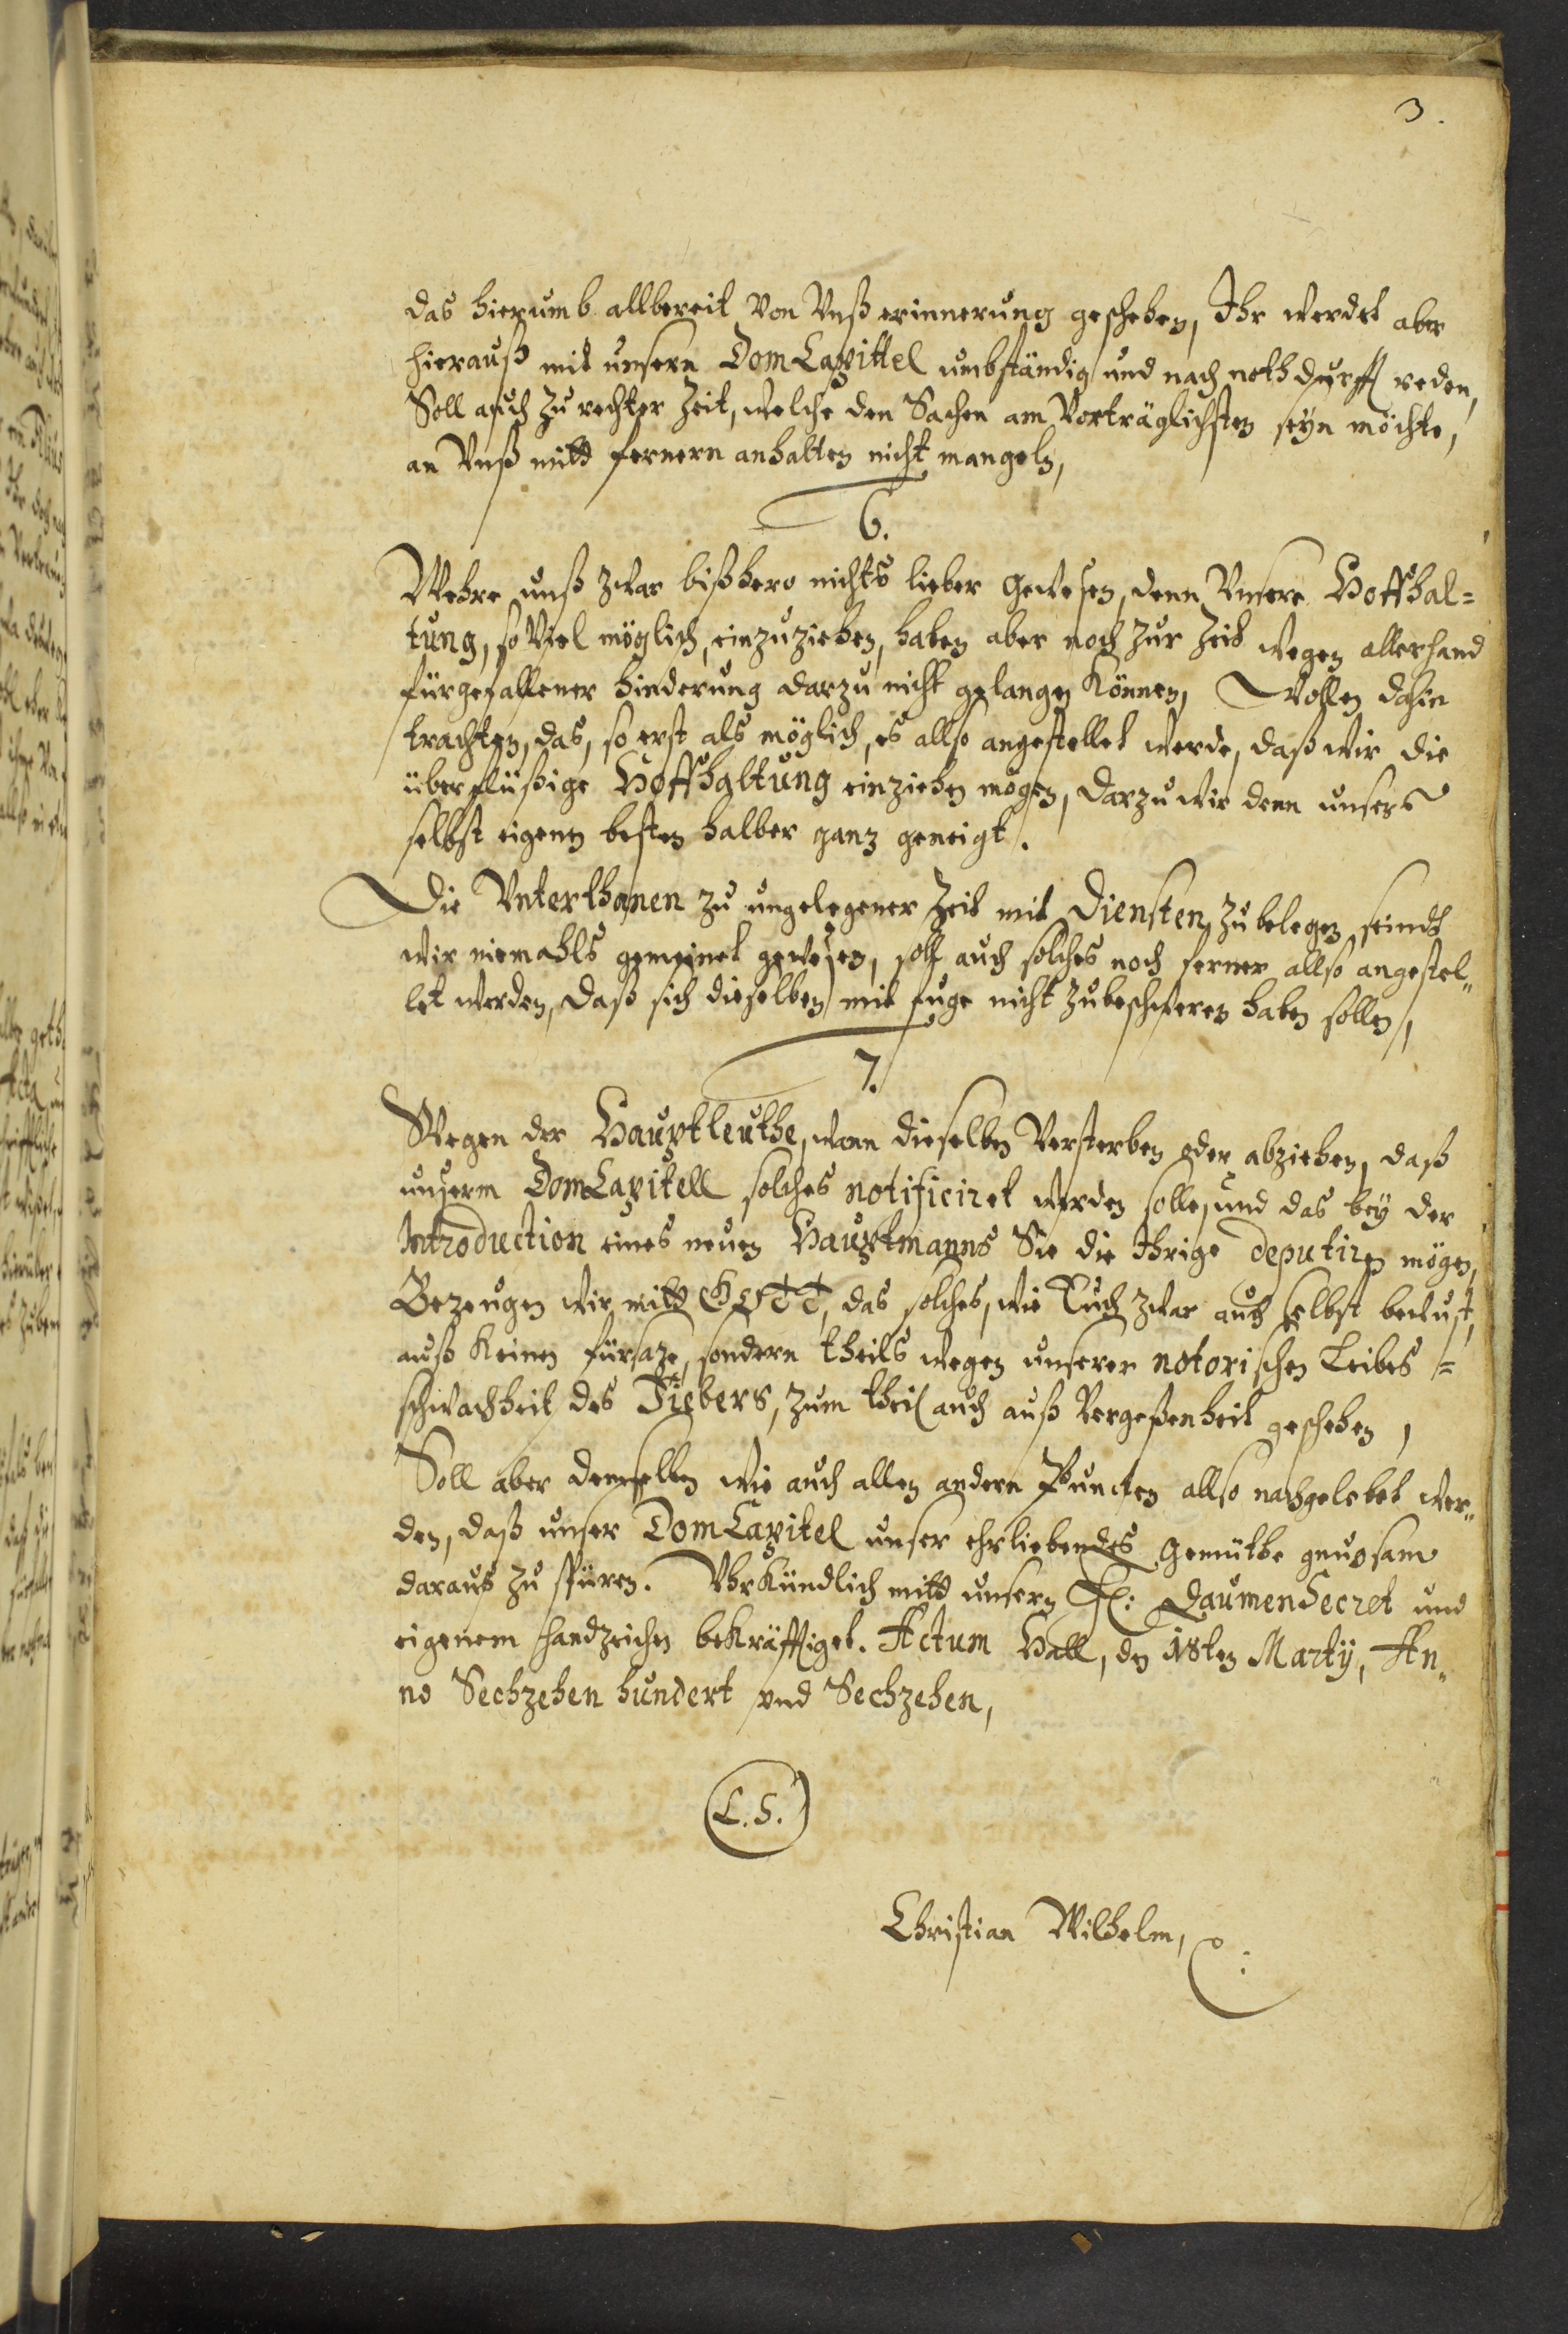 3.
das hierumb allbereit von Vnß erinnerung geschehen, Ihr werdet aber
hierauß mit unsern Dom Capittel umbständig und nach nothdurfft reden,
Soll auch zu rechter Zeit, welche den Sachen am Vorträglichsten seyn möchte,
an Vnß mitt fernern anhalten nicht mangeln,
6.
Wehre unß zwar bißhero nichts lieber gewesen, denn Vnsere Hoffhal=
tung, so Viel möglich, einzuziehen, haben aber noch zur Zeit wegen allerhand
fürgefallener hinderung darzu nicht gelangen können, Wollen dahin
trachten, das, so erst als möglich, es allso angestellet werde, daß wir die
überflüßige Hoffhaltung einziehen mögen, darzu wir denn unsers
selbst eigenen besten halber ganz geneigt.
Die Vnterthanen zu ungelegener Zeit mit Diensten zu belegen, seindt
wir niemahls gemeinet gewesen, soll auch solches noch ferner allso angestel„
let werden, daß sich dieselben mit fuge nicht zubeschweren haben sollen,
7.
Wegen der Hauptleuthe, wann dieselben Versterben oder abziehen, daß
unserm Dom Capitell solches notificiret werden solle, und das bey der
Introduction eines neuen Hauptmanns Sie die Ihrige deputiren mögen,
Bezeugen wir mitt GOTT, das solches, wie Euch zwar auch selbst bewust,
auß keinen fürsaze, sondern theils wegen unserer notorischen Leibes=
schwachheit des Fiebers, zum theil auch auß Vergeßenheit geschehen,
Soll aber demselben wie auch allen andern Puncten allso nachgelebet wer„
den, daß unser Dom Capitel unser ehrliebendes Gemüthe gnugsam
daraus zu spüren. Vhrkündlich mitt unserm F: DaumenSecret und
eigenem Handzeichen bekräfftiget. Actum Hall, den 18ten Martij, An„
no Sechzehen hundert vnd Sechzehen,
(L.S.)
Christian Wilhelm,